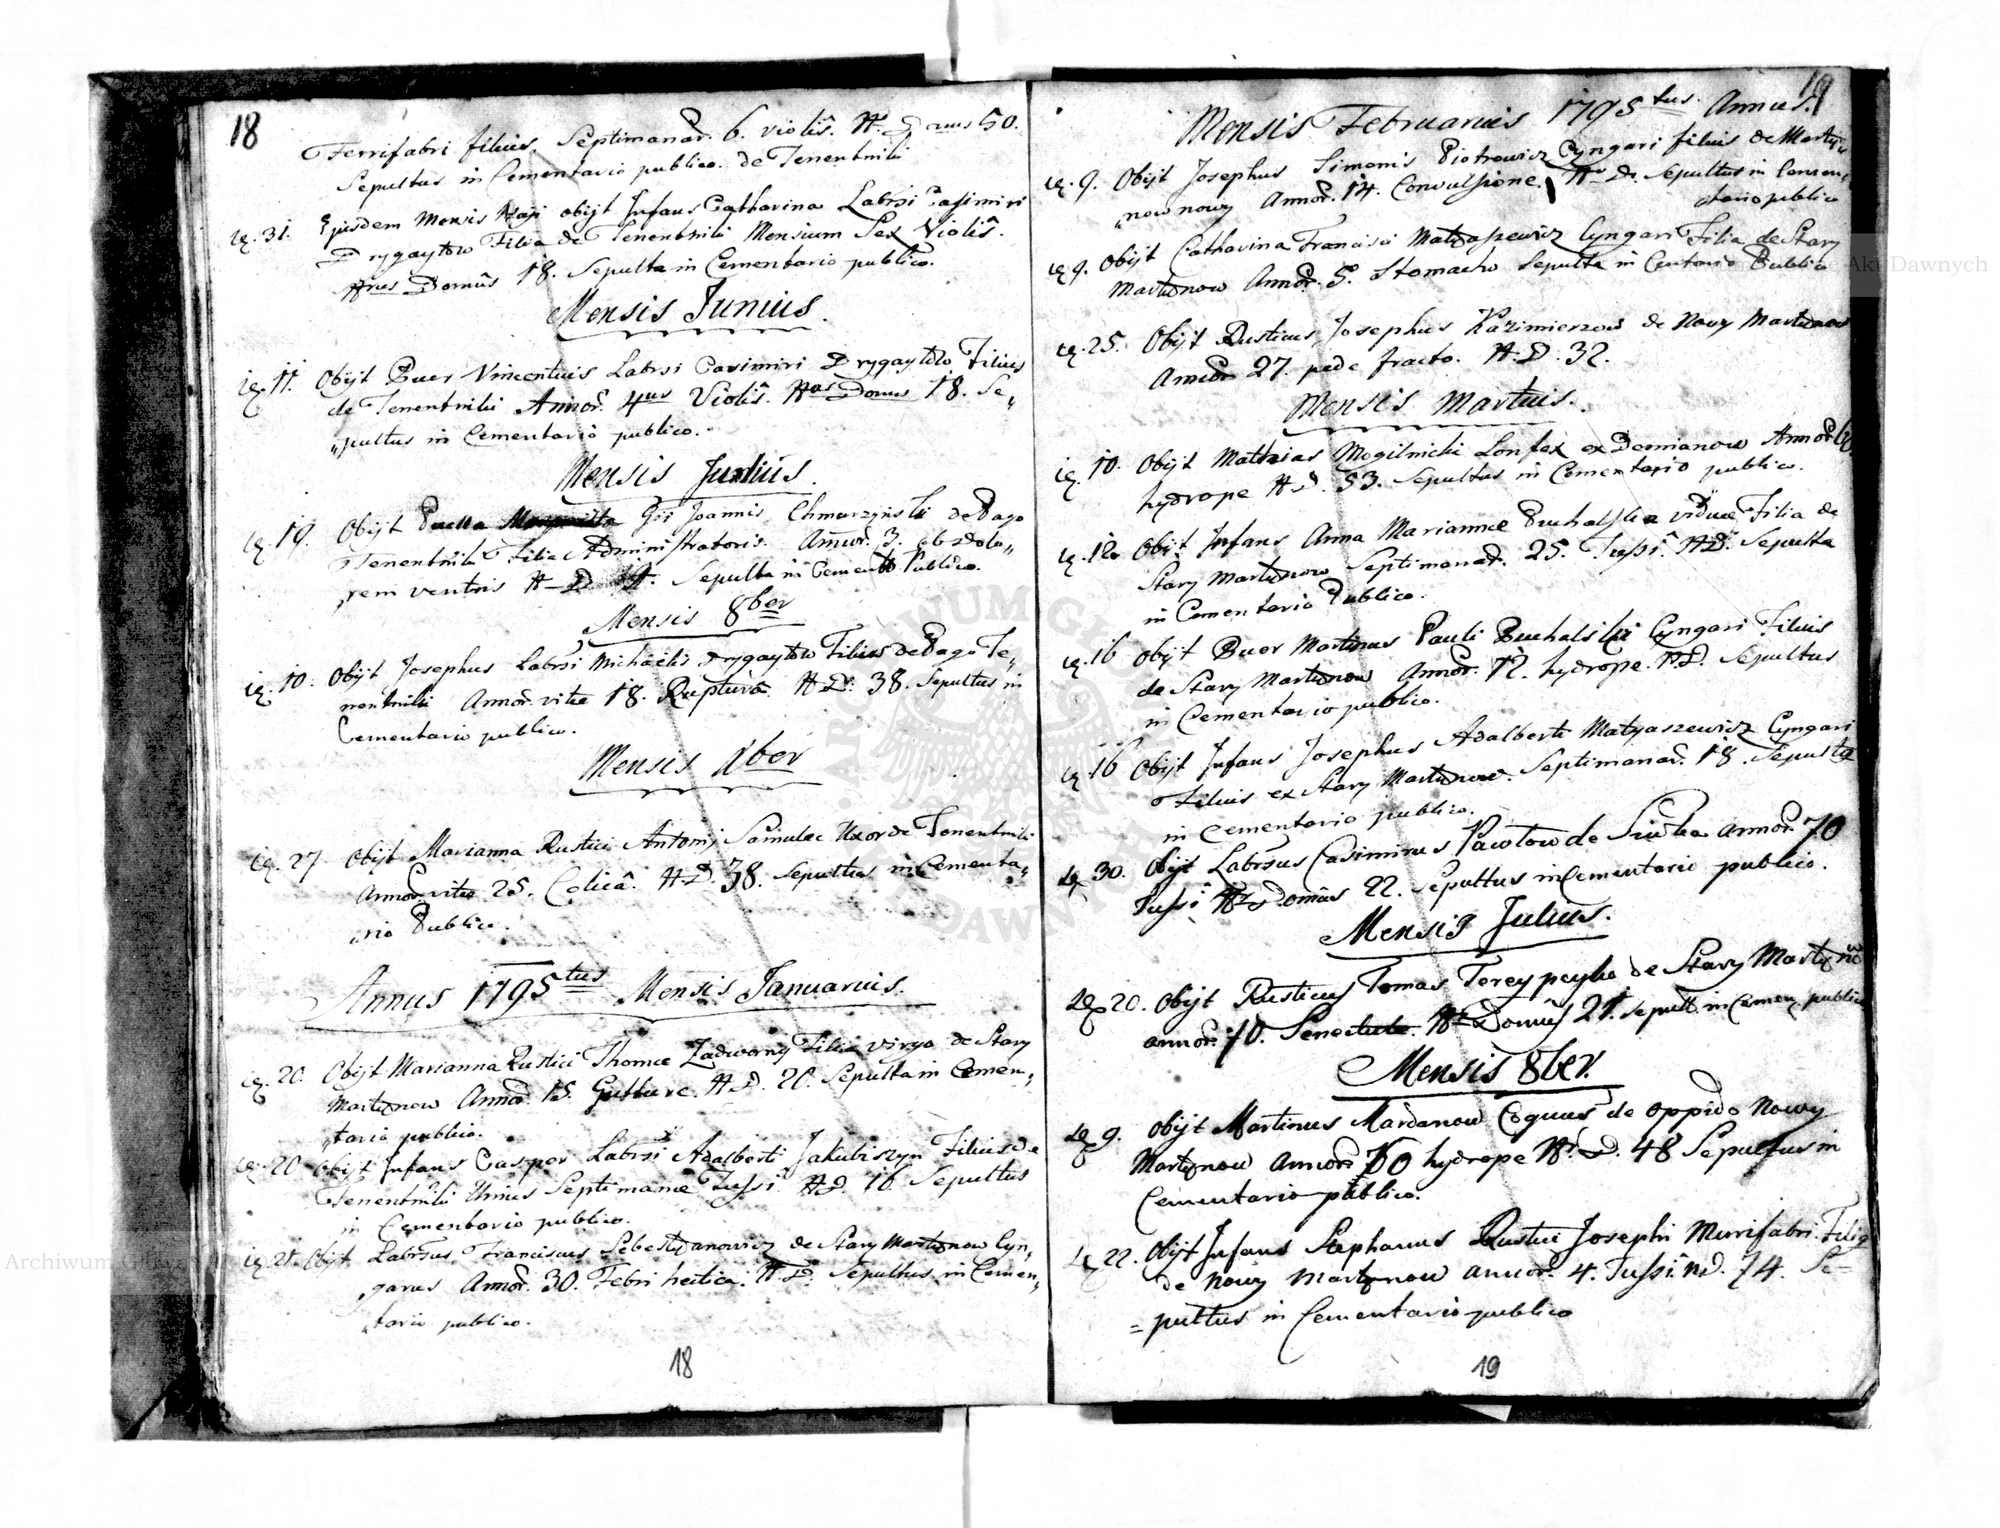 18
Ferrifabri filius, Septimanar. 6. violis. Nr. Domus 50.
Sepultus in Cementario publico. de Tenentniki
31. Ejusdem Mensis Maji obijt Infans Catharina Labrsi Casimiri
Drygaytow Filia de Tenentniki Mensium Sex Violis.
Nrus Domus 18. Sepulta in Cementario publico.
Mensis Junius.
11. Obijt Puer Vincentius Labrsi Casimiri Drygaytow Filius
de Tenentniki Annor. 4us Violis. Nrus Domus 18. Se„
„pultus in Cementario publico.
Mensis Junius.
19. Obijt Puella Gsi Joannis Chmurzynski de Pago
Tenentniki Filia Administratoris. Annor. 3. ob dolo„
„rem ventris N-D 19. Sepulta in Cement Publico.
Mensis 8ber
10. Obijt Josephus Labrsi Michaelis Drygaytow Filius de Pago Te„
nentniki Annor. vitae 18. Ruptura. N.D. 38. Sepultus in
Cementario publico.
Mensis ber
27 Obijt Marianna Rustici Antonij Samulec Uxor de Tenentniki
Annor. vitae 25. Colica. N.D. 38. Sepultus in Cementa„
„rio Publico.
Annus 1795tus Mensis Januarius.
20. Obijt Marianna Rustici Thomae Zadworny Filia virgo de Stary
Martynow Annor. 15. Gutture. N.D. 20. Sepulta in Cemen„
„tario publico.
20 Obijt Infans Casper Labrsi Adalberti Jakubiszyn Filius de
Tenentniki Unius Septimanae Tussi N.D. 16. Sepultus
in Cementario publico.
21. Obijt Labrsus Franciscus Sebestyanowicz de Stary Martynow Cyn„
„garus Annor. 30. Febri hectica. N.D. Sepultus in Cemen„
„tario publico.
18
19
Mensis Februarius 1795tus Annus.
9. Obijt Josephus Simonis Piotrowicz Cyngari filius de Marty„
„now nowy Annor. 14. Convulsione. Nr D. Sepultus in Cemen„
„tario publico
9. Obijt Catharina Francisci Matyaszewicz Cyngari Filia de Stary
Martynow Annor. 5. Stomacho Sepulta in Publico
25. Obijt Rusticus Josephus Kazimierzow de Nowy Martynow
Annor 27 pede fracto. N.D. 32.
Mensis Martius.
10. Obijt Mathias Mogilnicki ex Demianow Annor.
hydrope N.D. 53. Sepultus in Cementario publico.
12. Obijt Infans Anna Mariannae Puchalska viduae Filia de
Stary Martynow Septimanar. 25. Tussi. N.D. Sepulta
in Cementario Publico.
16 Obijt Puer Martinus Pauli Puchalski Cyngari Filius
de Stary Martynow Annor. 12. hydrope. N.D. Sepultus
in Cementario publico.
16 Obijt Infans Josephus Adalberti Matyaszewicz Cyngari
Filius ex Stary Martynow. Septimanar. 18. Sepulty
in Cementario publico.
30. Obijt Labrsus Casimirus Pawlow de Siwka annor. 70
Tussi Nr Domus 22. Sepultus in Cementario publico.
Mensis Julius.
20. Obijt Rusticus Tomas de Stary Martynow
annor. 70. Senectute. Nr Domus 21. sepult. in Cemen. publico
Mensis 8ber.
9. Obijt Martinus Mardanow Coquus de oppido Nowy
Martynow annor. 60 hydrope Nr. D. 48 Sepultus in
Cementario publico.
22. Obijt Infans Stephanus Rustici Josephi Murifabri Filig
de nowy Martynow annor. 4. Tussi. N.D. 74. Se-
=pultus in Cementario publico
19
ARCHIWUM GŁÓWNE AKT DAWNYCH